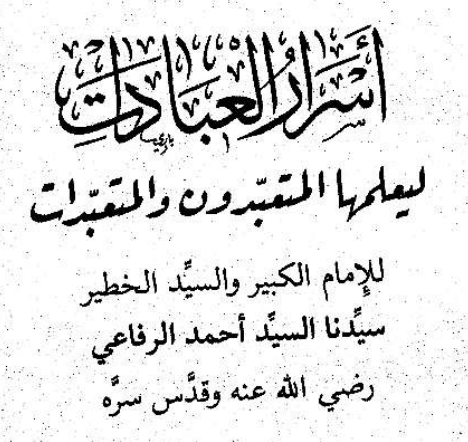 أَسْرَارُ الْعِبَادَاتِ
ليعلمها المتعبّدون والمتعبّدات
للإمام الكبير والسيِّد الخطير
سيِّدنا السيِّد أحمد الرفاعي
رضي الله عنه وقدَّس سرَّه